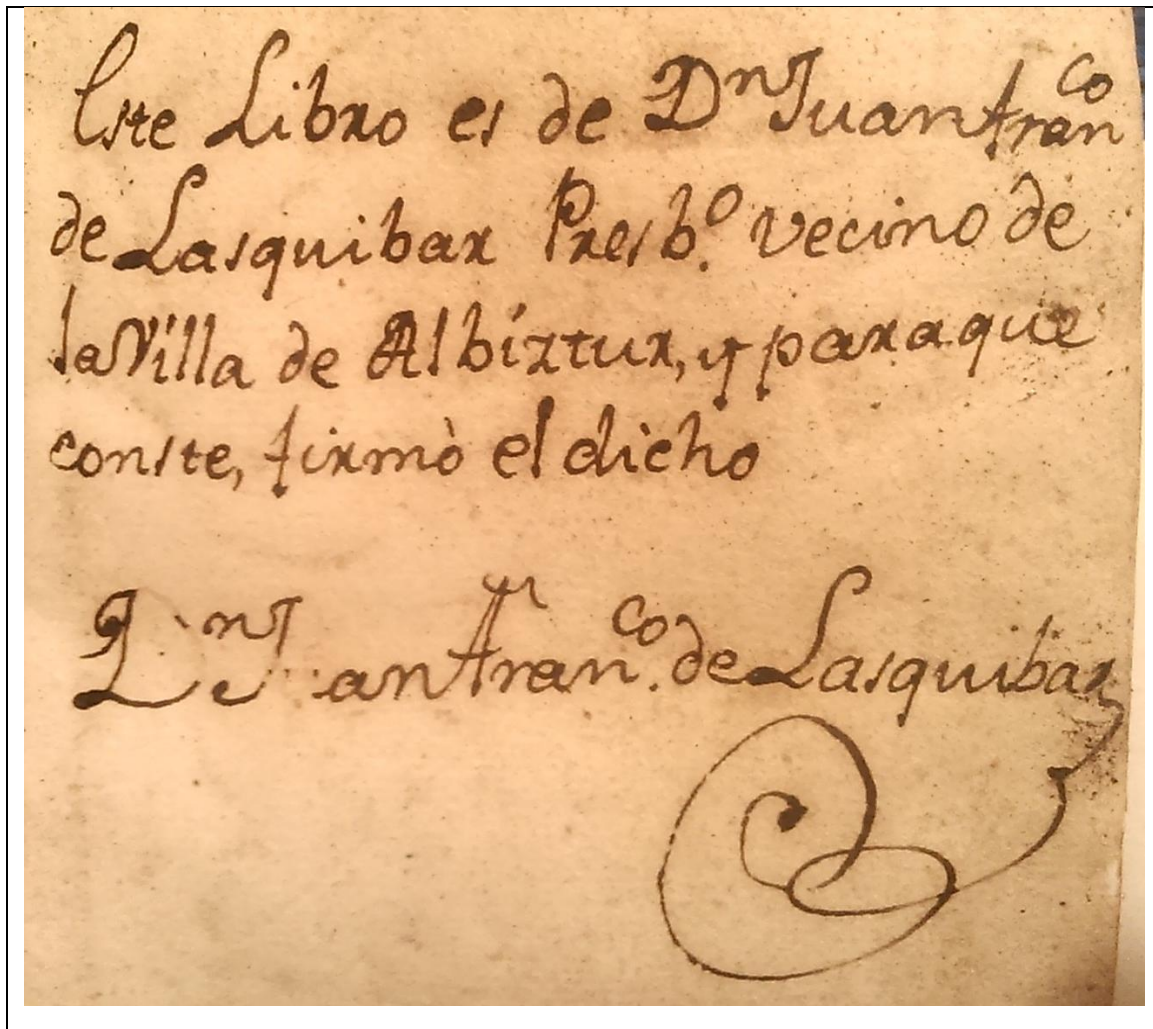 Este Libro es de Dn Juan Franco
de Lasquibar Presbo. vecino de
la Villa de Albiztur, y para que
conste, firmò el dicho
Dn Juan Franco. de Lasquibar